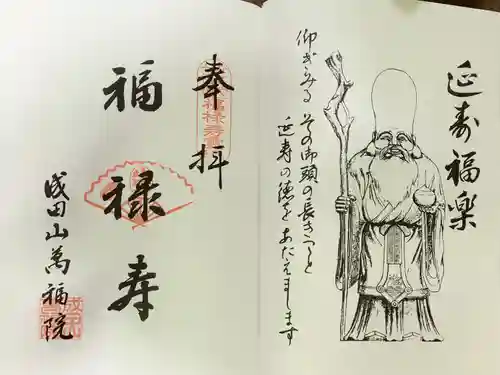 延寿福楽
仰ぎみる その御頭の長きこと
延寿の徳をあたえまします
奉拝
福禄寿
成田山萬福院